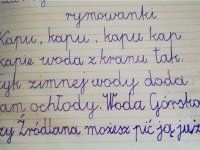 rymowanki
Kapu, kapu, kapu kap
kapie woda z kranu tak.
yk zimnej wody doda
am ochłody. Woda Górska
zy Źródlana możesz pić ją już